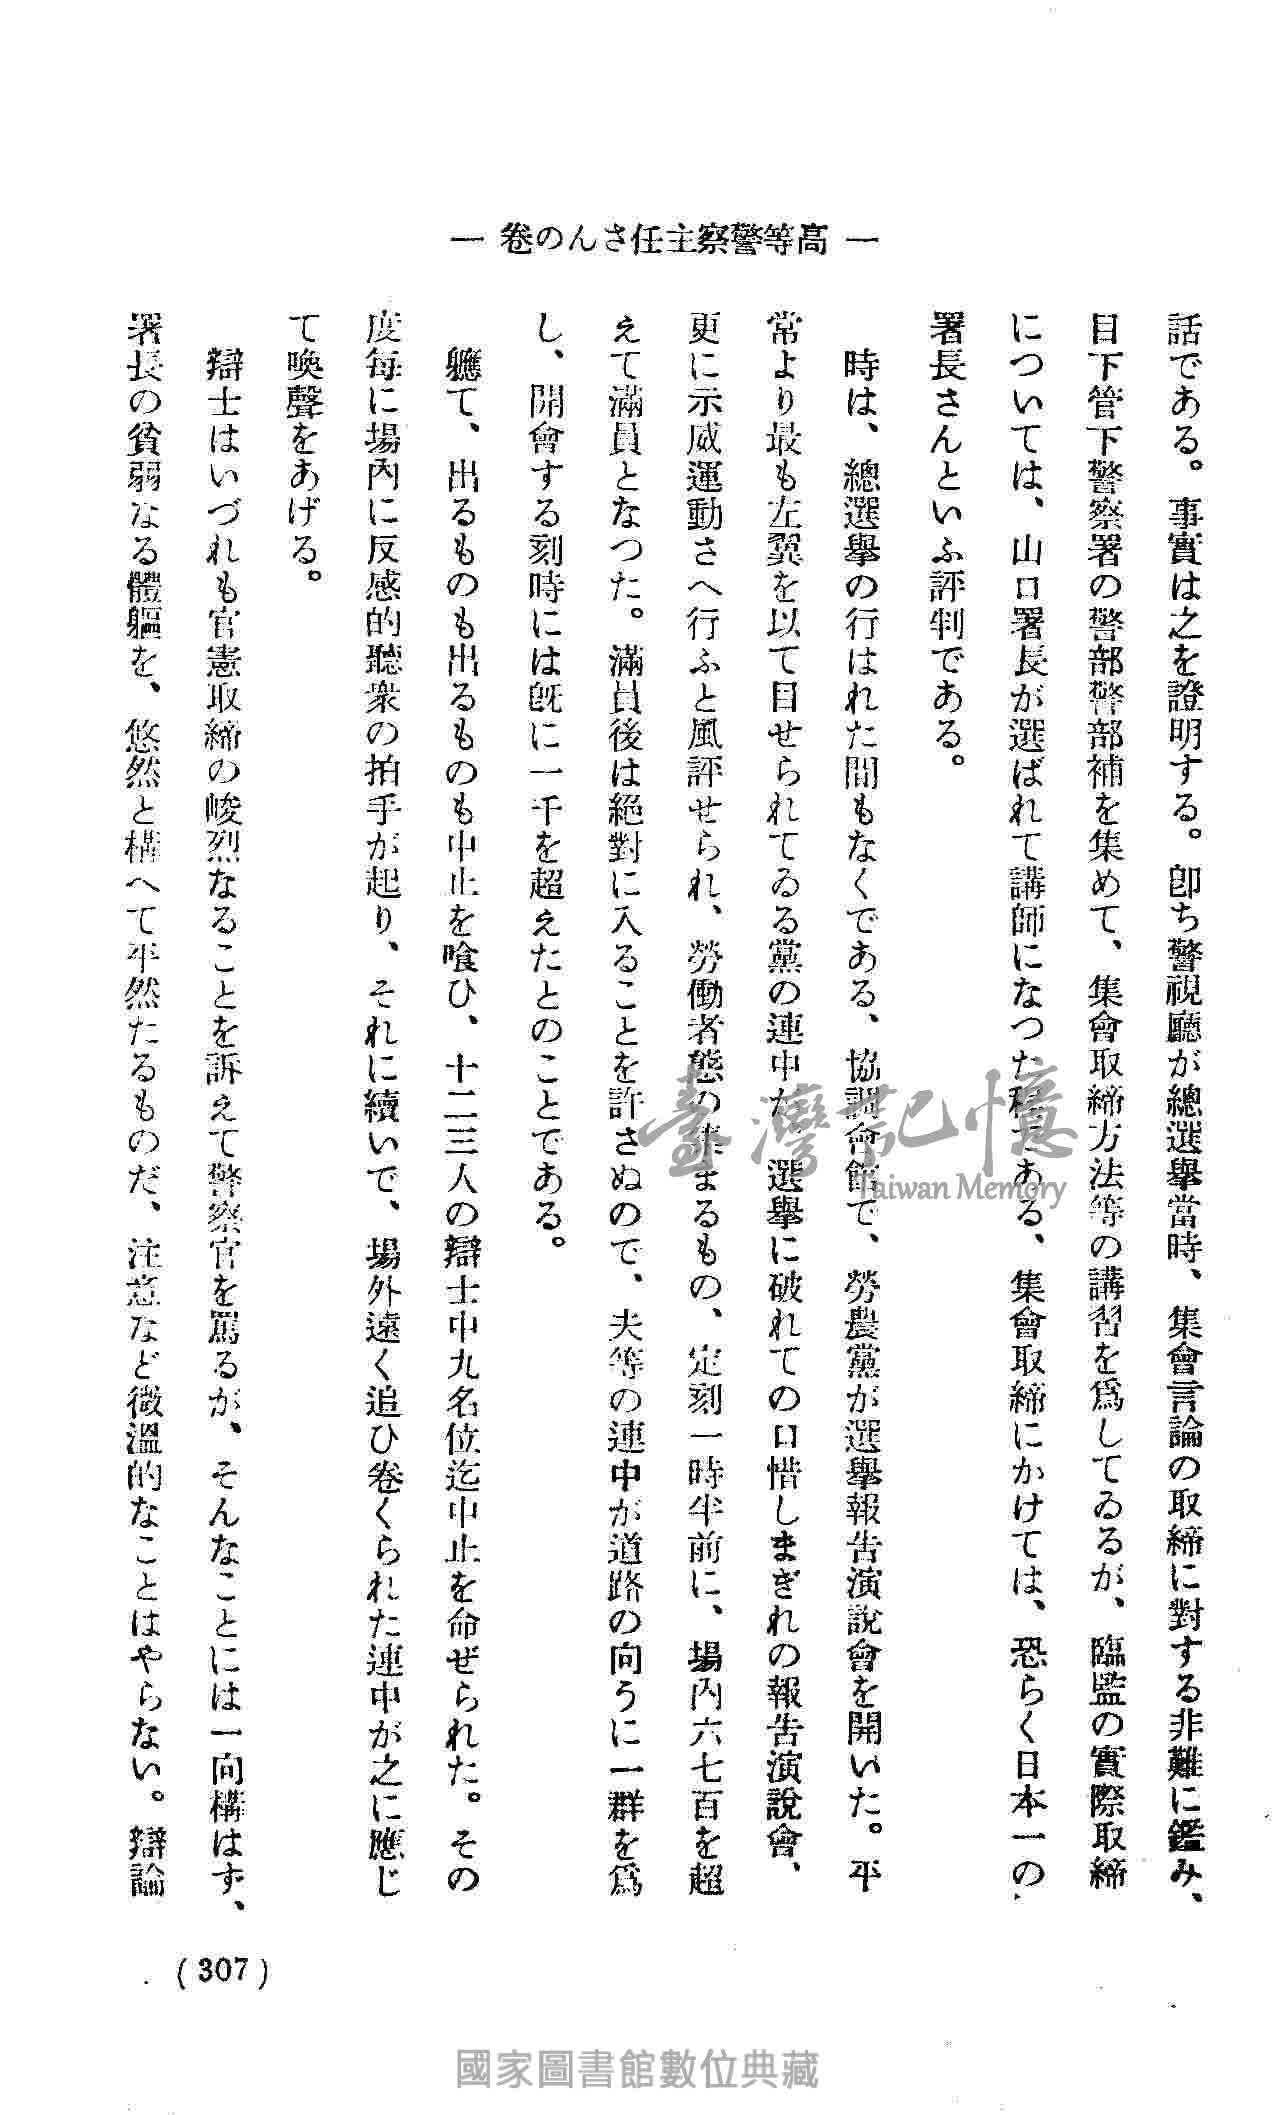 ― 高等警察主任さんの卷 ―
話である。事實は之を證明する。卽ち警視廳が總選擧當時、集會言論の取締に對する非難に鑑み、
目下管下警察署の警部警部補を集めて、集會取締方法等の講習を爲してゐるが、臨監の實際取締
については、山口署長が選ばれて講師になつた程である、集會取締にかけては、恐らく日本一の
署長さんといふ評判である。
時は、總選擧の行はれた間もなくである、協調會館で、勞農黨が選擧報告演說會を開いた。平
常より最も左翼を以て目せられてゐる黨の連中が、選擧に破れての口惜しまぎれの報告演說會、
更に示威運動さへ行ふと風評せられ、勞働者態の集まるもの、定刻一時半前に、場內六七百を超
えて滿員となつた。滿員後は絕對に入ることを許さぬので、夫等の連中が道路の向うに一群を爲
し、開會する刻時には旣に一千を超えたとのことである。
軈て、出るものも出るものも中止を喰ひ、十二三人の辯士中九名位迄中止を命ぜられた。その
度每に場內に反感的聽衆の拍手が起り、それに續いで、場外遠く追ひ卷くられた連中が之に應じ
て喚聲をあげる。
辯士はいづれも官憲取締の峻烈なることを訴えて警察官を罵るが、そんなことには一向構はず、
署長の貧弱なる體軀を、悠然と構へて平然たるものだ、注意など微溫的なことはやらない。辯論
(307)
臺灣記憶
Taiwan Memory
國家圖書館數位典藏